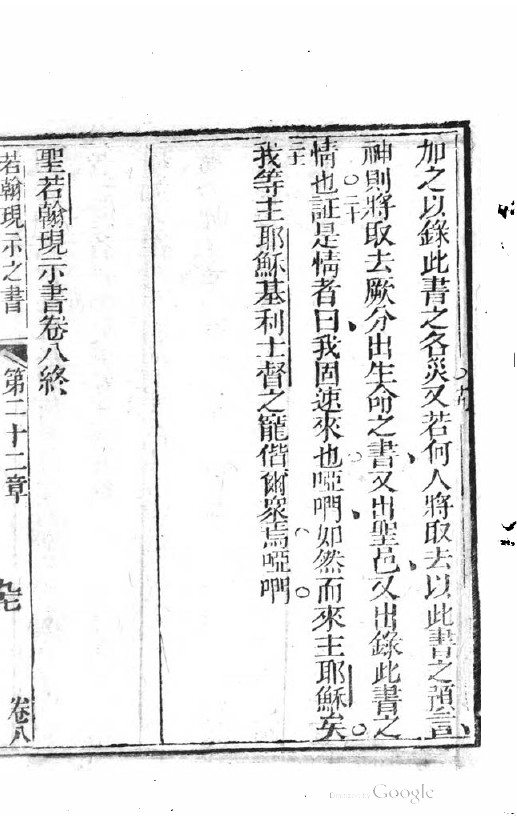 加之以錄此書之各災又若何人將取去以此書之預言
神則將取去厥分出生命之書又出聖邑又出錄此書之
情也証是情者曰我固速來也啞們如然而來主耶穌矣
我等主耶穌基利士督之寵偕爾衆焉啞們
聖若翰現示書卷八終
若翰現示之書
第二十二章
九七
卷八
Digitized by Google